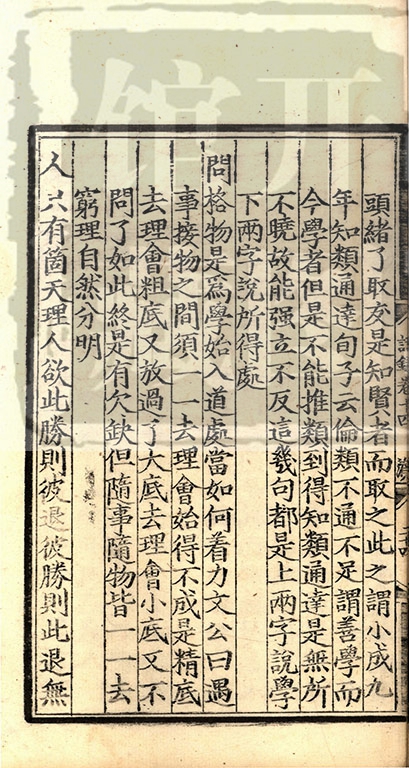 頭緒了取友是知賢者而取之此之謂小成九
年知類通達句子云倫類不通不足謂善學而
今學者但是不能推類到得知類通達是無所
不曉故能强立不反這幾句都是上兩字說學
下兩字說所得處
問格物是爲學始入道處當如何着力文公曰遇
事接物之間須一一去理會始得不成是精底
去理會粗底又放過了大底去理會小底又不
問了如此終是有欠缺但隨事隨物皆一一去
窮理自然分明
人只有箇天理人欲此勝則彼退彼勝則此退無